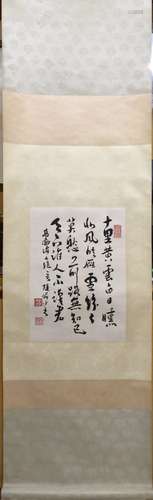 十里黄雲白日曛
北風吹雁雪紛紛
莫愁前路無知己
天下誰人不識君